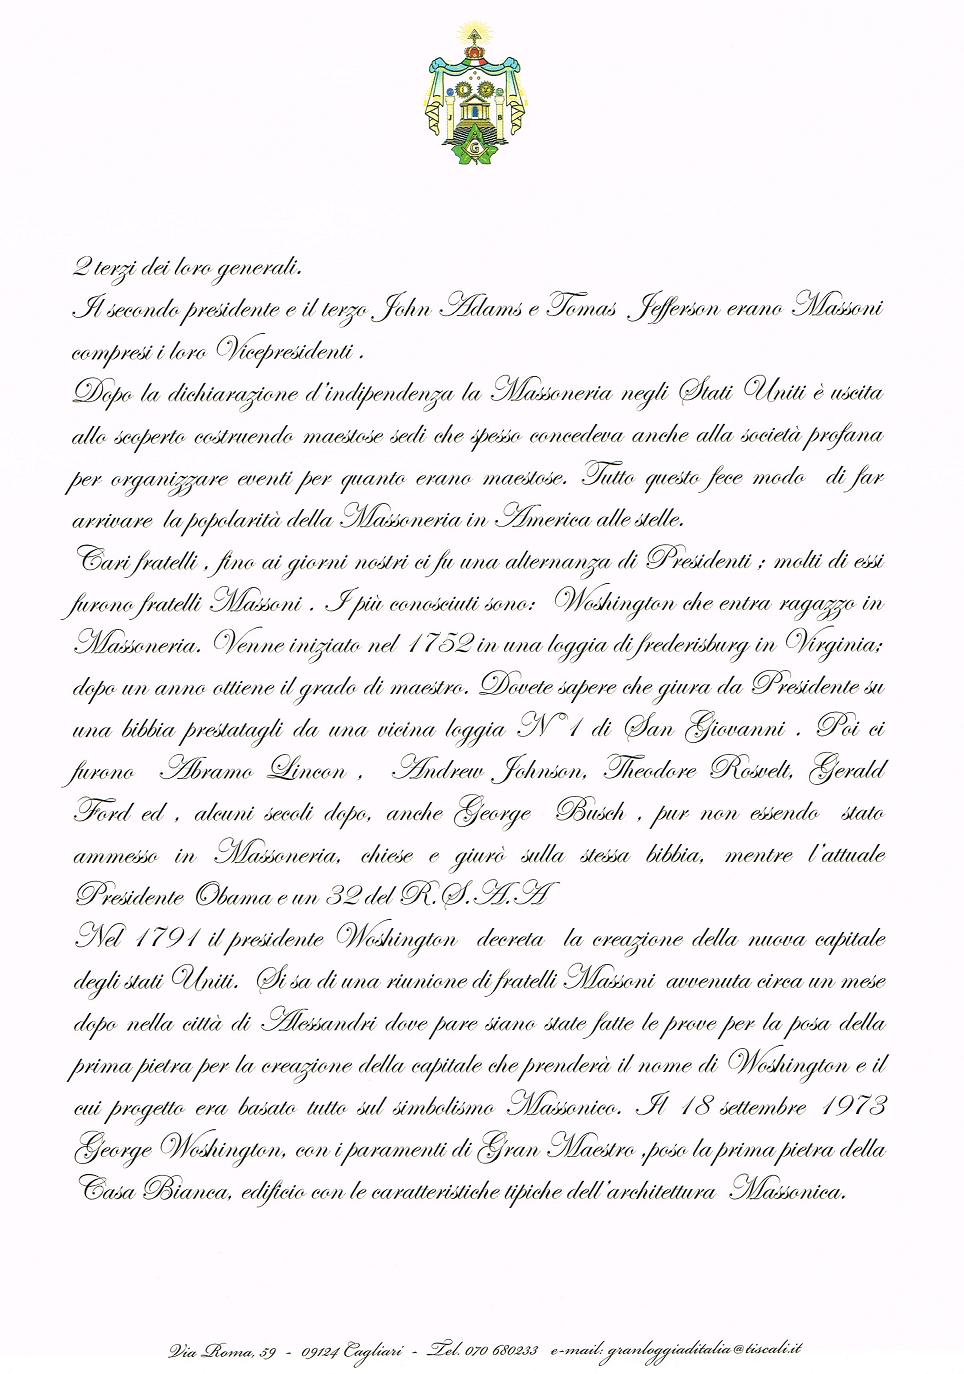 J
B
G
2 terzi dei loro generali.
Il secondo presidente e il terzo John Adams e Tomas Jefferson erano Massoni
compresi i loro Vicepresidenti .
Dopo la dichiarazione d'indipendenza la Massoneria negli Stati Uniti è uscita
allo scoperto costruendo maestose sedi che spesso concedeva anche alla società profana
per organizzare eventi per quanto erano maestose. Tutto questo fece modo di far
arrivare la popolarità della Massoneria in America alle stelle.
Cari fratelli , fino ai giorni nostri ci fu una alternanza di Presidenti ; molti di essi
furono fratelli Massoni . I più conosciuti sono: Woshington che entra ragazzo in
Massoneria. Venne iniziato nel 1752 in una loggia di frederisburg in Virginia;
dopo un anno ottiene il grado di maestro. Dovete sapere che giura da Presidente su
una bibbia prestatagli da una vicina loggia N°1 di San Giovanni . Poi ci
furono Abramo Lincon , Andrew Johnson, Theodore Rosvelt, Gerald
Ford ed , alcuni secoli dopo, anche George Busch , pur non essendo stato
ammesso in Massoneria, chiese e giurò sulla stessa bibbia, mentre l'attuale
Presidente Obama e un 32 del R.S.A.A
Nel 1791 il presidente Woshington decreta la creazione della nuova capitale
degli stati Uniti. Si sa di una riunione di fratelli Massoni avvenuta circa un mese
dopo nella città di Alessandri dove pare siano state fatte le prove per la posa della
prima pietra per la creazione della capitale che prenderà il nome di Woshington e il
cui progetto era basato tutto sul simbolismo Massonico. Il 18 settembre 1973
George Woshington, con i paramenti di Gran Maestro ,poso la prima pietra della
Casa Bianca, edificio con le caratteristiche tipiche dell'architettura Massonica.
Via Roma, 59 - 09124 Cagliari - Tel. 070 680233 e-mail: granloggiaditalia@tiscali.it